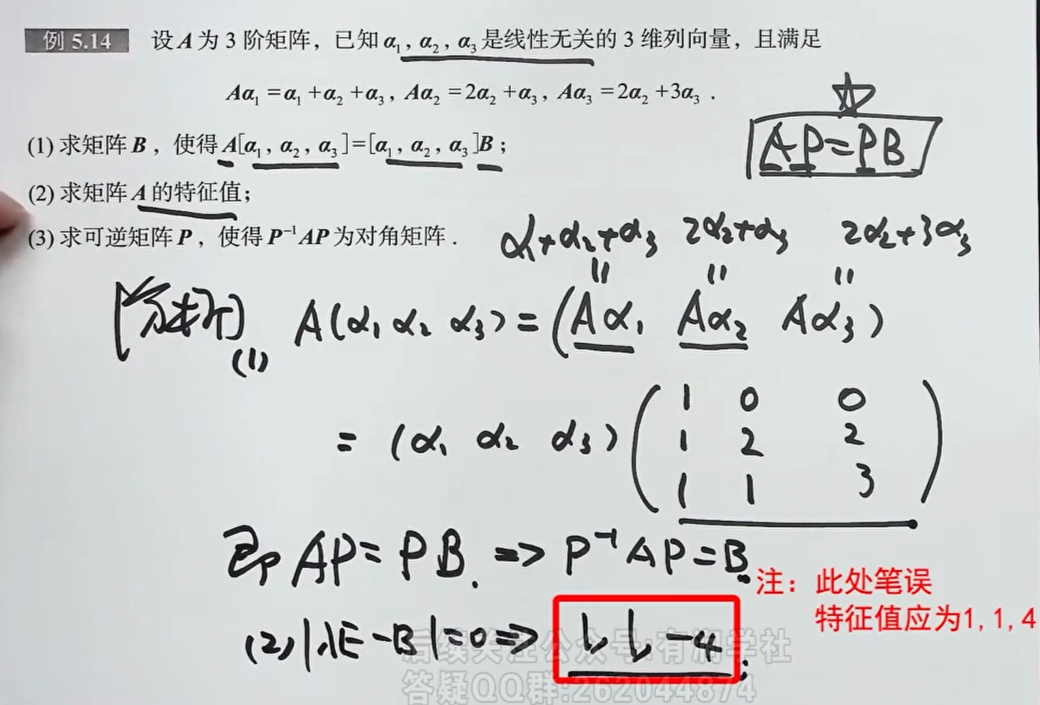 例 5.14 设A为3阶矩阵，已知α₁，α₂，α₃是线性无关的3维列向量，且满足
Aα₁=α₁+α₂+α₃，Aα₂=2α₂+α₃，Aα₃=2α₂+3α₃．
(1) 求矩阵B，使得A[α₁，α₂，α₃]=[α₁，α₂，α₃]B；
AP=PB
(2) 求矩阵A的特征值；
(3) 求可逆矩阵P，使得P⁻¹AP为对角矩阵．
α₁+α₂+α₃ 2α₂+α₃ 2α₂+3α₃
[分析] (1) A(α₁ α₂ α₃)=(Aα₁ Aα₂ Aα₃)
=(α₁ α₂ α₃)
1 0 0
1 2 2
1 1 3
即 AP=PB. => P⁻¹AP=B.
注：此处笔误
特征值应为1,1,4
(2) |λE-B|=0 => 1, 1, -4;
后续关注公众号:有润学社
答疑QQ群:262044874